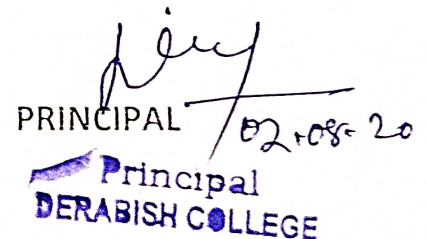 PRINCIPAL 02.08.20
Principal
DERABISH COLLEGE